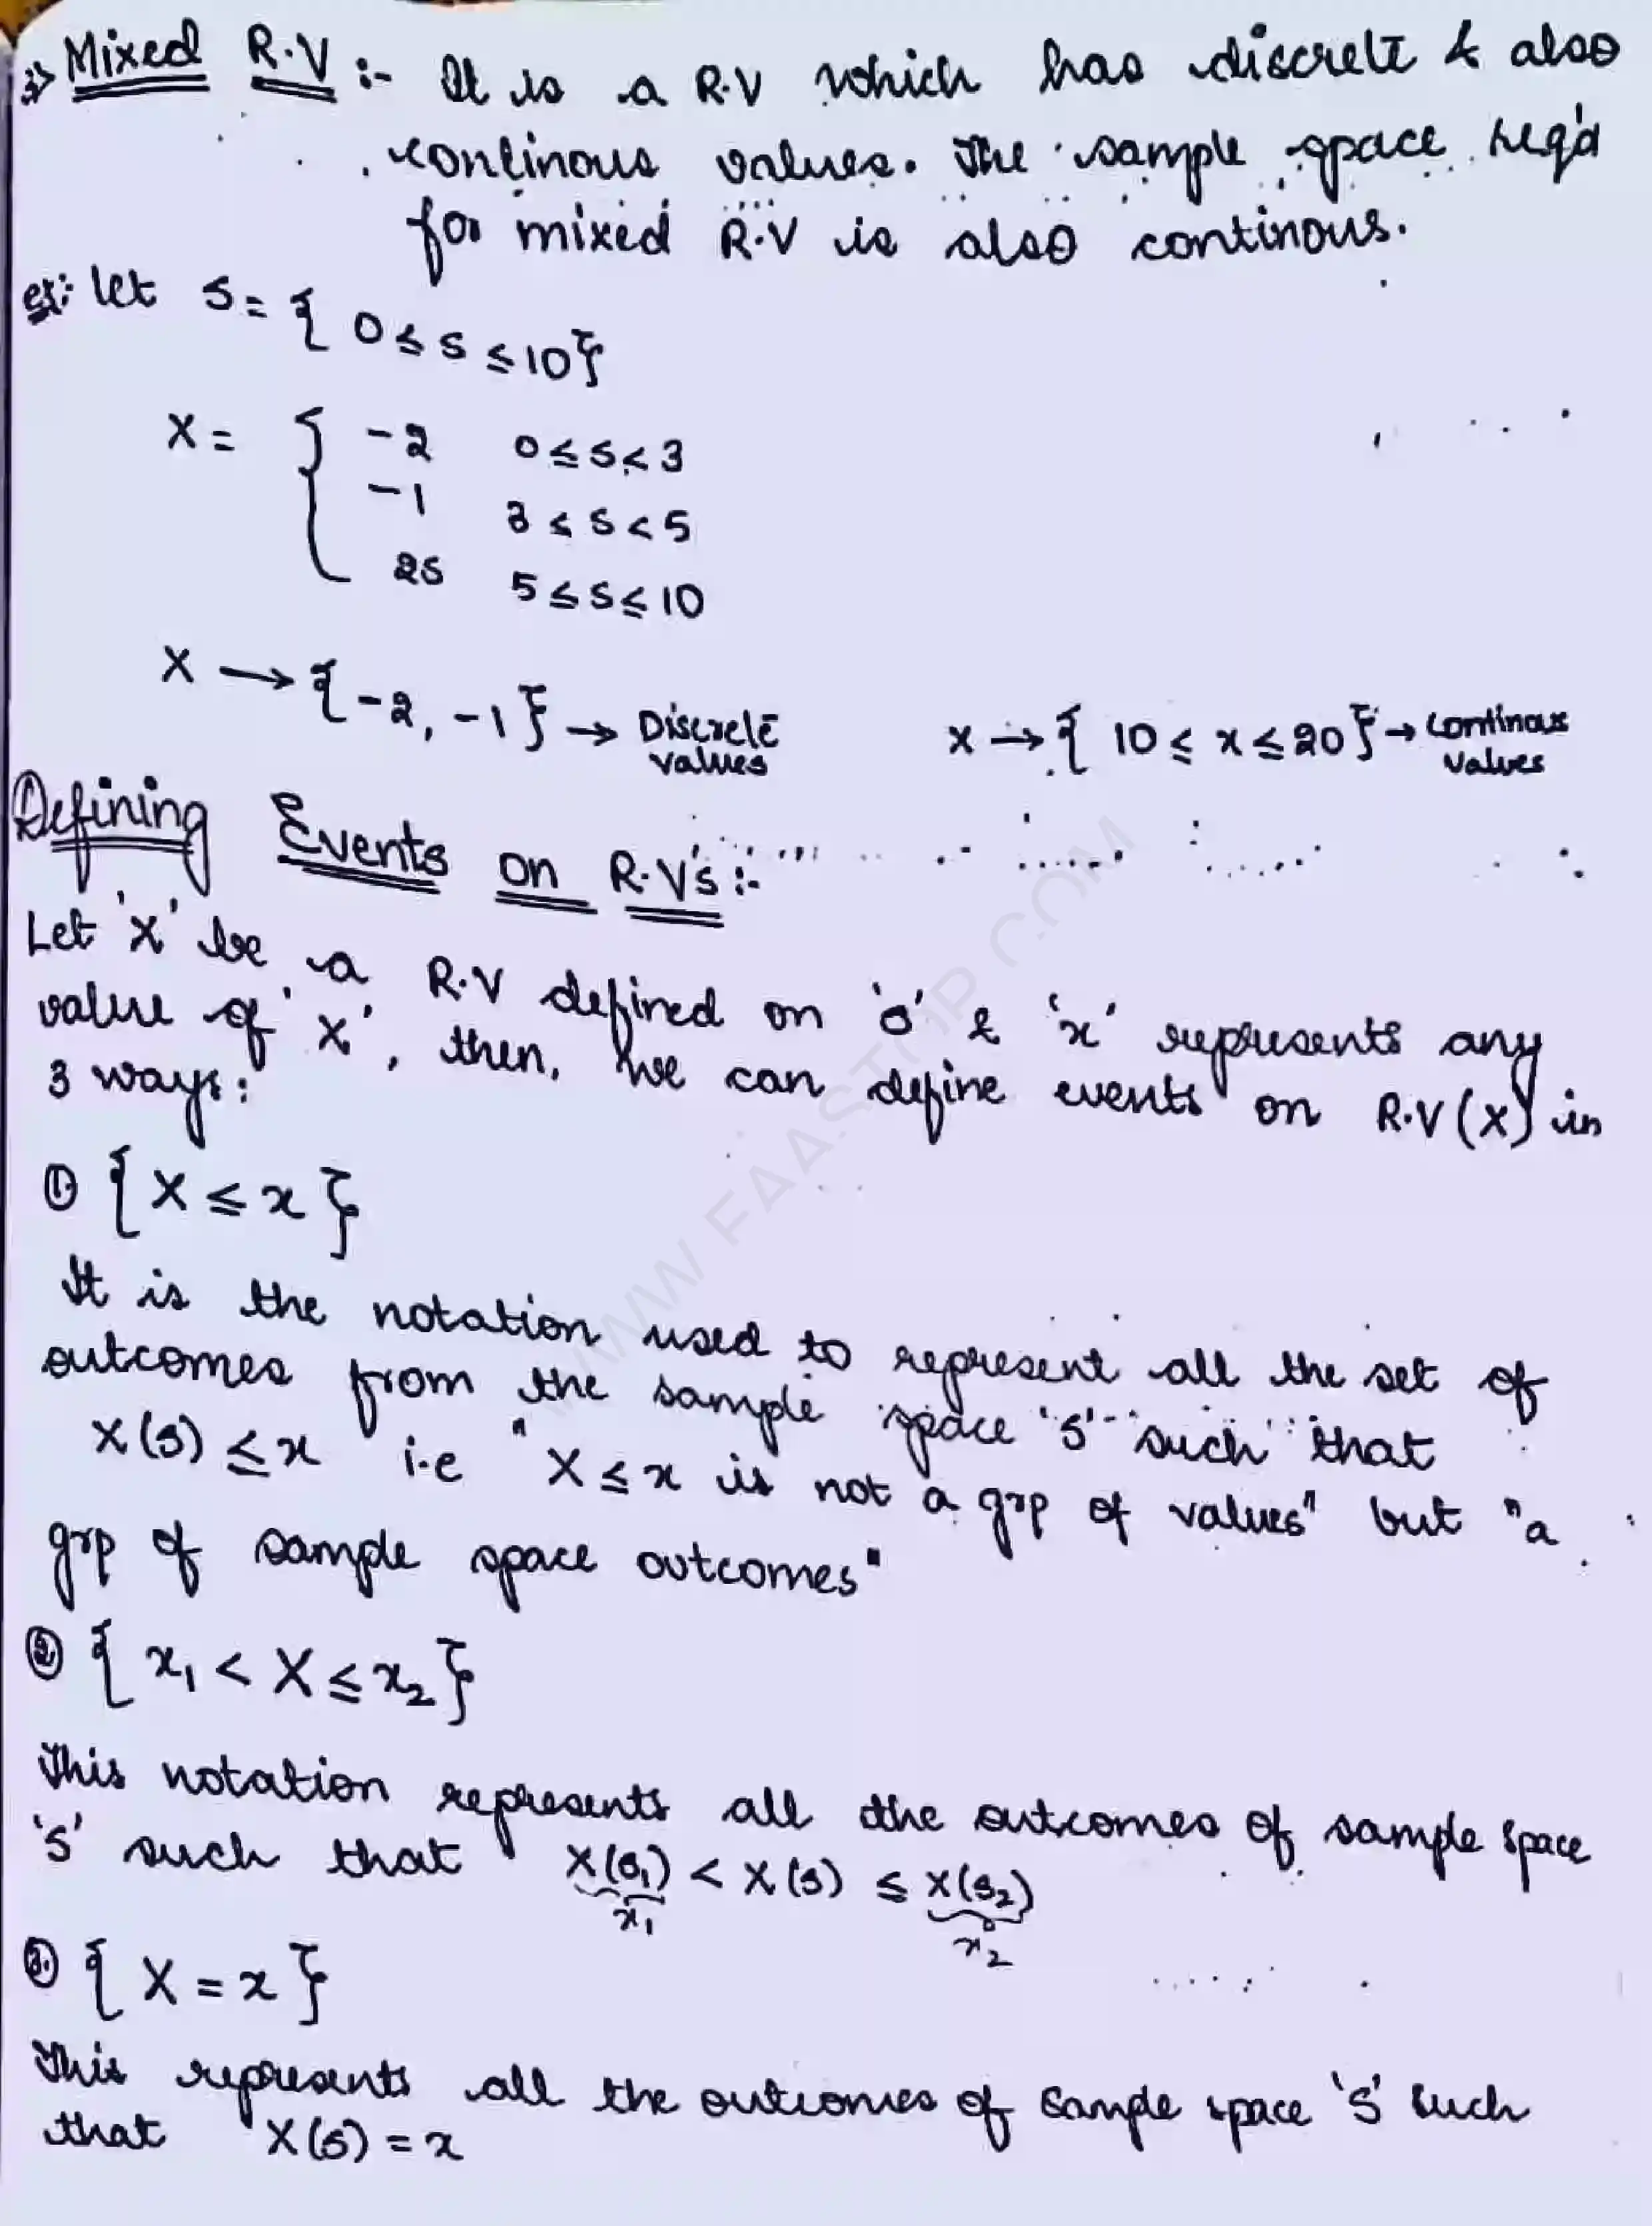 3> Mixed R.V :- It is a R.V which has discrete & also
continous values. The sample space req'd
for mixed R.V is also continous.
ex: let S = { 0 ≤ s ≤ 10}
X = { -2 0 ≤ s < 3
-1 3 ≤ s < 5
2s 5 ≤ s ≤ 10
X → {-2, -1} → Discrete values X → { 10 ≤ x ≤ 20} → continous values
Defining Events on R.V's :-
Let 'X' be a R.V defined on 's' & 'x' represents any
value of 'X', then, we can define events on R.V (X) in
3 ways:
① { X ≤ x }
It is the notation used to represent all the set of
outcomes from the sample space 'S' such that
X(s) ≤ x i.e "X ≤ x is not a grp of values" but "a
grp of sample space outcomes"
② { x₁ < X ≤ x₂ }
This notation represents all the outcomes of sample space
'S' such that X(s₁) < X(s) ≤ X(s₂)
x₁ x₂
③ { X = x }
This represents all the outcomes of sample space 'S' such
that X(s) = x
WWW.FAASTOP.COM